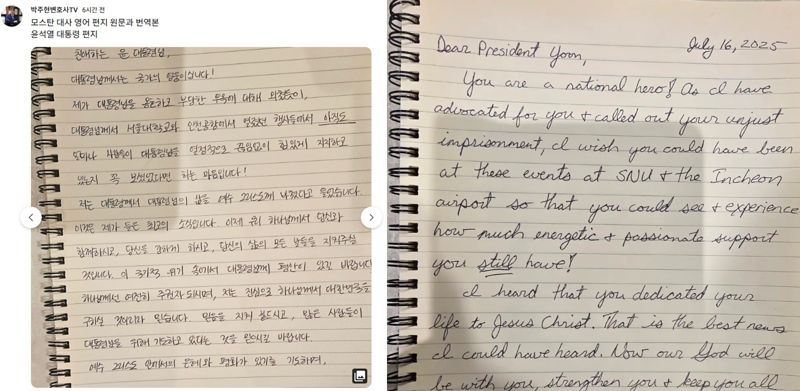 박주현변호사TV 6시간 전
모스탄 대사 영어 편지 원문과 번역본
윤석열 대통령 편지
친애하는 윤 대통령님,
대통령님께서는 국가의 영웅이십니다!
제가 대통령님을 옹호하고 부당한 투옥에 대해 외쳤듯이,
대통령님께서 서울대학교와 인천공항에서 열렸던 행사들에서 아직도
얼마나 사람들이 대통령님을 열정적으로 끊임없이 힘있게 지지하고
있는지 꼭 보셨었다면 하는 마음입니다!
저는 대통령께서 대통령님의 삶을 예수 그리스도께 바쳤다고 들었습니다.
이것은 제가 들은 최고의 소식입니다. 이제 우리 하나님께서 당신과
함께하시고, 당신을 강하게 하시고, 당신의 삶의 모든 날들을 지켜주실
것입니다. 이 국가적 위기 속에서 대통령님께 평안이 있길 바랍니다
하나님께선 여전히 주권자 되시며, 저는 진심으로 하나님께서 대한민국을
구하실 것이라 믿습니다. 믿음을 지켜 싸우시고, 많은 사람들이
대통령님을 위해 기도하고 있다는 것을 아시길 바랍니다.
예수 그리스도 안에서의 은혜와 평화가 있기를 기도하며,
July 16, 2025
Dear President Yoon,
You are a national hero! As I have
advocated for you & called out your unjust
imprisonment, I wish you could have been
at these events at SNU & the Incheon
airport so that you could see & experience
how much energetic & passionate support
you still have!
I heard that you dedicated your
life to Jesus Christ. That is the best news
I could have heard. Now our God will
be with you, strengthen you & keep you all